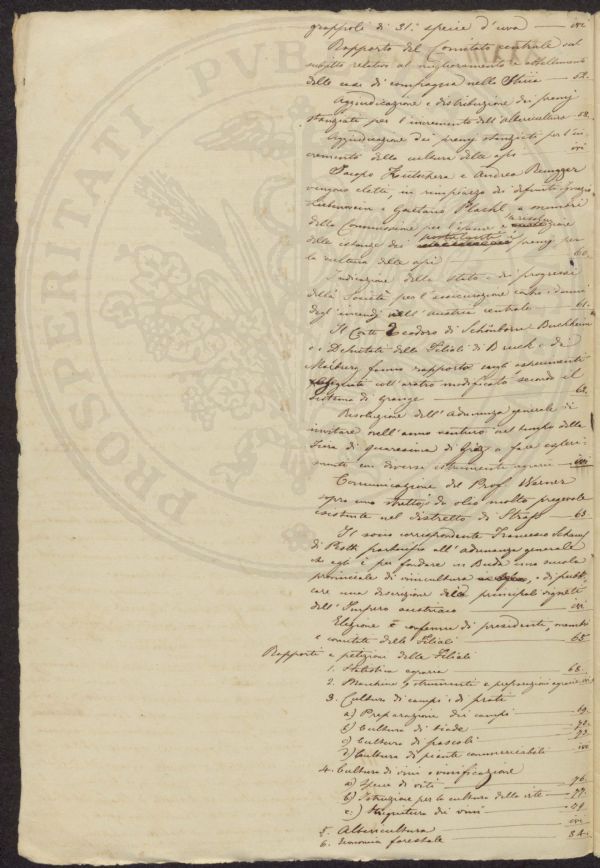 grappoli di 31. specie d'uva — ivi
Rapporto del Comitato centrale sul
subjetto relativo al miglioramento e abbellimento
delle case di campagna nella Stiria — 52.
Aggiudicazione e distribuzione dei premj
stanziati per l'incremento dell'albericoltura — 58.
Aggiudicazione dei premj stanziati per l'in-
cremento della cultura delle api — ivi
Jacopo e Andrea
vengono eletti, in rimpiazzo dei defunti
e Gaetano a membri
della Commissione per l'esame e
delle istanze dei premj per
la cultura delle api — 60.
Indicazione dello stato e dei progressi
della Società per l'assicurazione contro i danni
degli incendj nell'Austria centrale — 61.
Il Conte Teodoro di Schönborn Buchheim
e i Deputati delle Filiali di Bruck e di
Marburg fanno rapporto sugli esperimenti
coll'aratro modificato secondo il
sistema di Grangé — 62.
Risoluzione dell'Adunanza generale di
invitare nell'anno venturo nel tempo della
Fiera di quaresima di Graz a fare esperi-
mento con diversi istrumenti agrarii — ivi
Comunicazione del Prof. Werner
sopra uno strettojo da olio molto pregevole
esistente nel distretto di — 63
Il socio corrispondente Francesco Schams
di Pesth partecipò all'adunanza generale
che egli è per fondare in Buda una scuola
provinciale di vinicultura e di pubbli-
care una descrizione dei principali vigneti
dell'Impero austriaco — ivi
Elezione e conferme di presidente, membri
e comitati delle Filiali — 65.
Rapporti e petizioni delle Filiali
1. Statistica agraria — 68.
2. Macchine, istrumenti e preparazioni agrarie ivi
3. Cultura di campi e di prati
a) Preparazione dei campi — 69.
b) Cultura di biade — 70.
c) Cultura di pascoli — 73.
d) Cultura di piante commerciabili — ivi
4. Cultura di vini e vinificazione
a) Specie di viti — 76.
b) Istruzione per la cultura della vite — 77.
c) dei vini — 79.
5. Albericultura — ivi
6. Economia forestale — 84.
PRO PUB